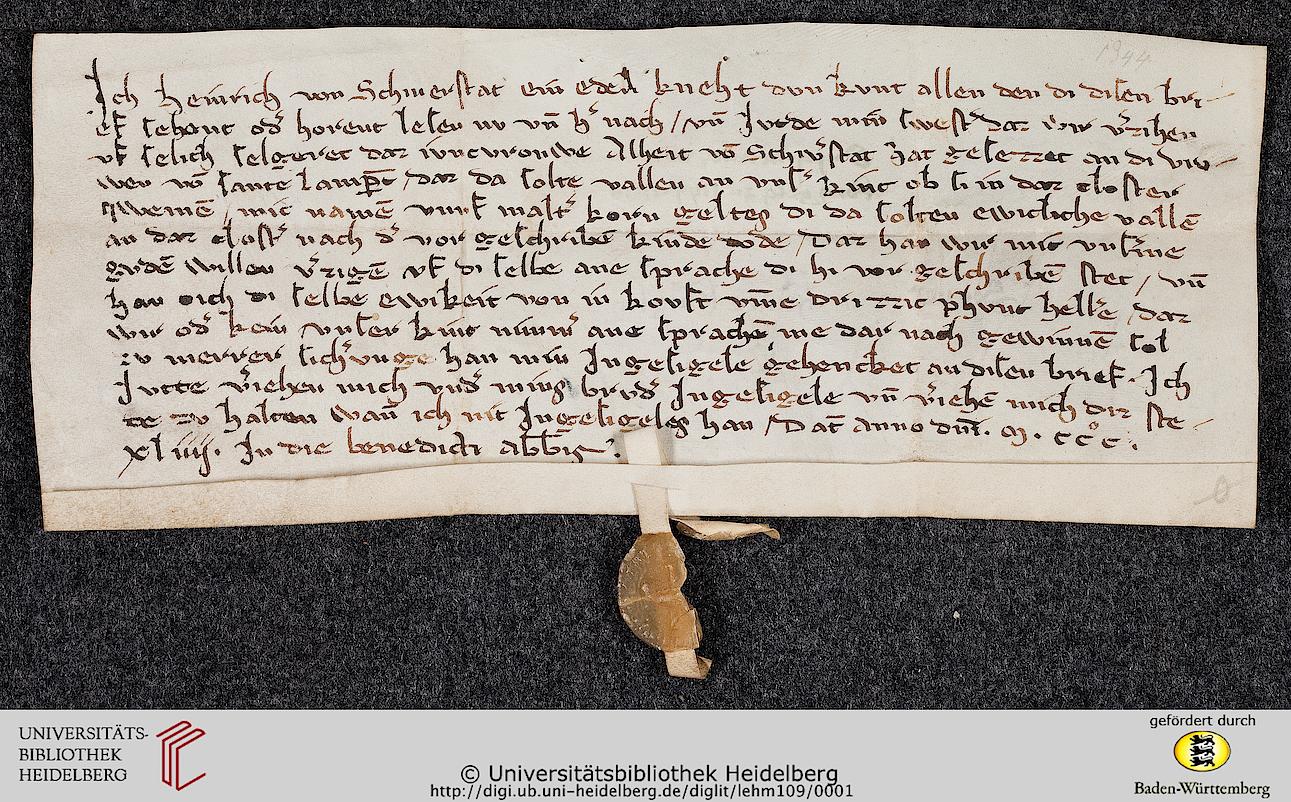 1344
Ich Heinrich von Schinerstat ein edel kneht dvn kvnt allen den di disen bri-
ef sehent od' horent lesen nv vn̄ h' nach / vn̄ Jvtde min swest' daz wir v'zihen
vf selich selgeret daz iuncvrouwe Alheit vō Schin'stat hat gesezzet an di vro-
wen vō sante Lamp̄t / daz da solte vallen an vns' kint ob si in daz closter
qwemē / mit namē vunf malt' korn geltes di da solten ewicliche vallē
an daz clost' nach d' vor geschribē kinde tode / Daz han wir mit vns'me
gvdē willen v'zigē vf di selbe ane sprache di hi vor geschribē stet / vn̄
han oich di selbē ewikeit von in kouft vm̄e drizzic phunt hell'e / daz
wir od' kein vnser kint nim̄' ane sprachē me dar nach gewinnē sol
zv merrer sich'vnge han min Ingesigele gehencket an disen brief. Ich
Jvtte v'iehen mich vnd' mins brvd' Ingesigele vn̄ v'iehē mich diz ste-
te zv halten wan̄ ich nit Ingesigeles han / Dat̄ anno dn̄i. M. ccc°.
xl iiij. In die benedicti abb̄is.
0
UNIVERSITÄTS-
BIBLIOTHEK
HEIDELBERG
© Universitätsbibliothek Heidelberg
http://digi.ub.uni-heidelberg.de/diglit/lehm109/0001
gefördert durch
Baden-Württemberg